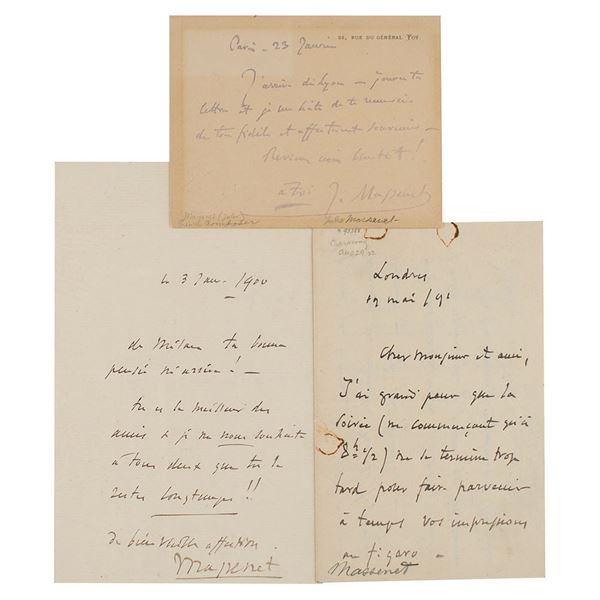 38, RUE DU GÉNÉRAL FOY.
Paris - 23 Janvier
J'arrive de Lyon - trouve ta
lettre et je me hâte de te remercier
de ton fidèle et affectueux souvenir -
Reviens bientôt !
à toi J. Massenet
Massenet (Jules)
composer
Jules Massenet
le 3 Janv. 1900
de Milan ta bonne
pensée m'arrive ! -
tu es le meilleur des
amis & je ne nous souhaite
à tous deux que tu le
restes longtemps !!
de bien vieille affection.
Massenet
Londres
mai /91
Cher Monsieur et ami,
J'ai grand peur que la
soirée (ne commençant qu'à
8h 1/2) ne se termine trop
tard pour faire parvenir
à temps vos impressions
au figaro -
Massenet